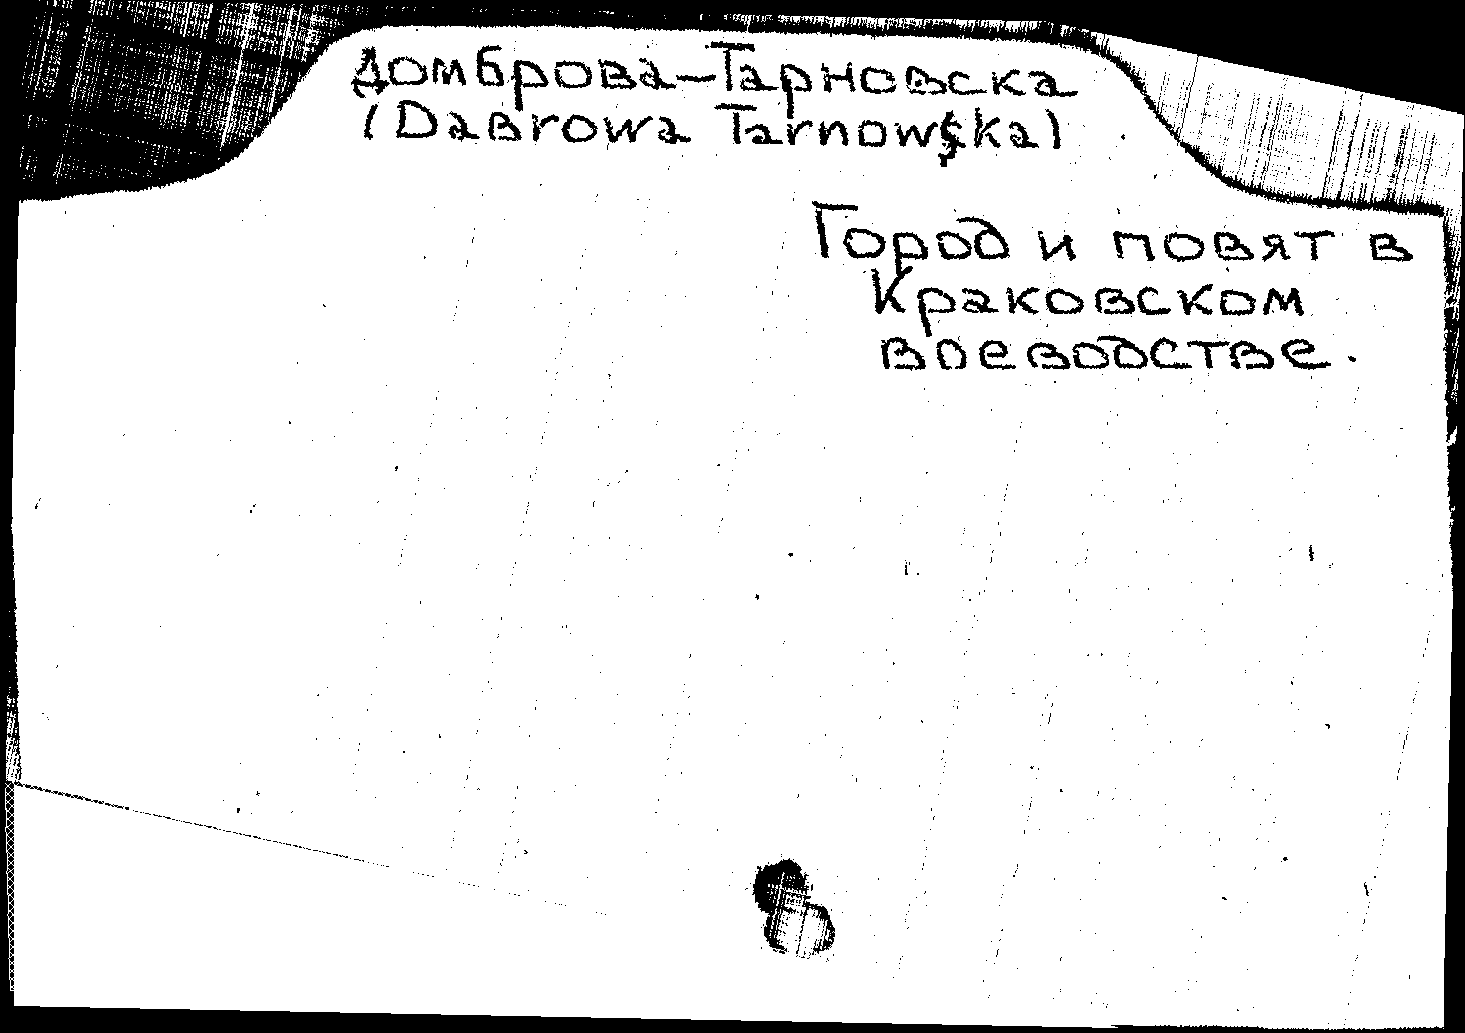 Домброва-Тарновска
(Dabrowa Tarnowska)
Город и повят в
Краковском
воеводстве.